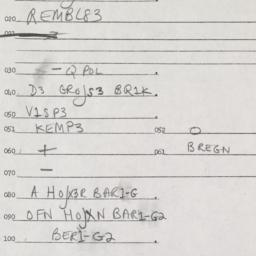 020 REMBL83
030 - Q POL
040 D3 GROJS3 BQ1K
050 V1SP3
051 KEMP3 052 O
060 + 061 BREGN
070 -
080 A HOJ3R BAR1-G
090 OFN HOJXN BAR1-G2
100 BER1-G2